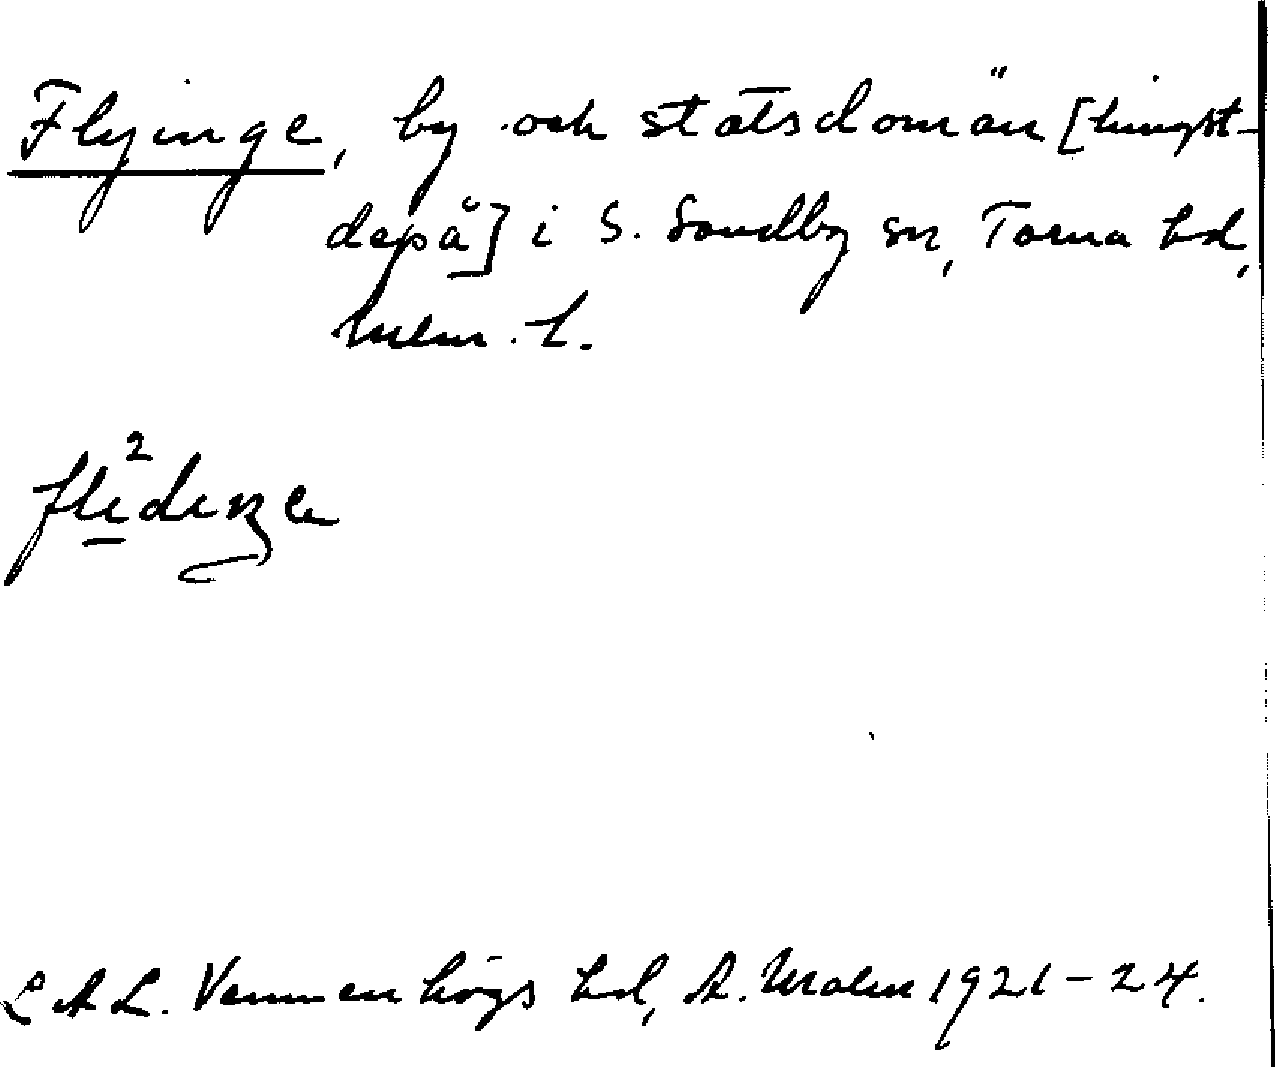 Flyinge, by och statsdomän [hingst-
depå] i S. Sandby sn, Torna hd,
Malm. l.
L A L. Vemmenhögs hd, A. Malm 1921-24.